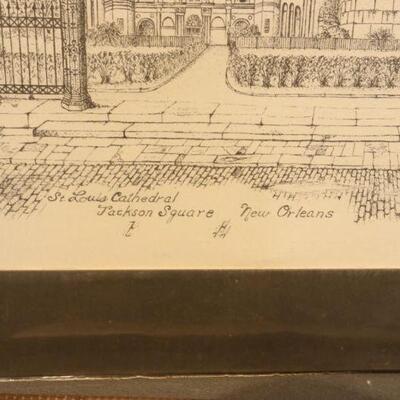 St Louis Cathedral
Jackson Square New Orleans